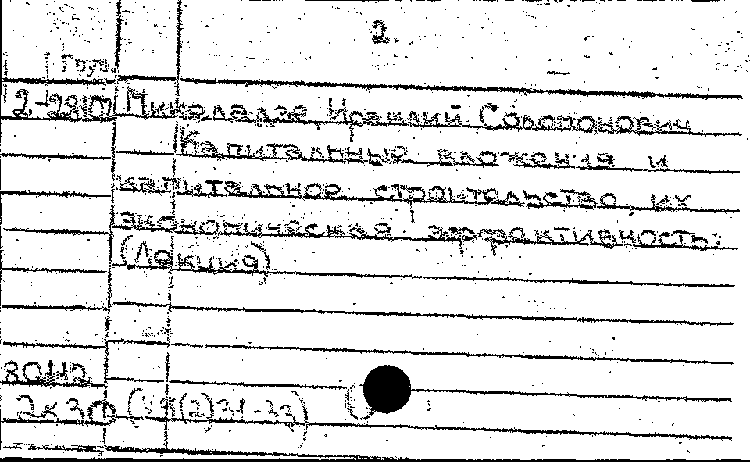 2.
Груз.
2-2810 Миколадзе, Ираклий Соломонович
Капитальные вложения и
капитальное строительство, их
экономическая эффективность:
(Лекция)
80112
2к3